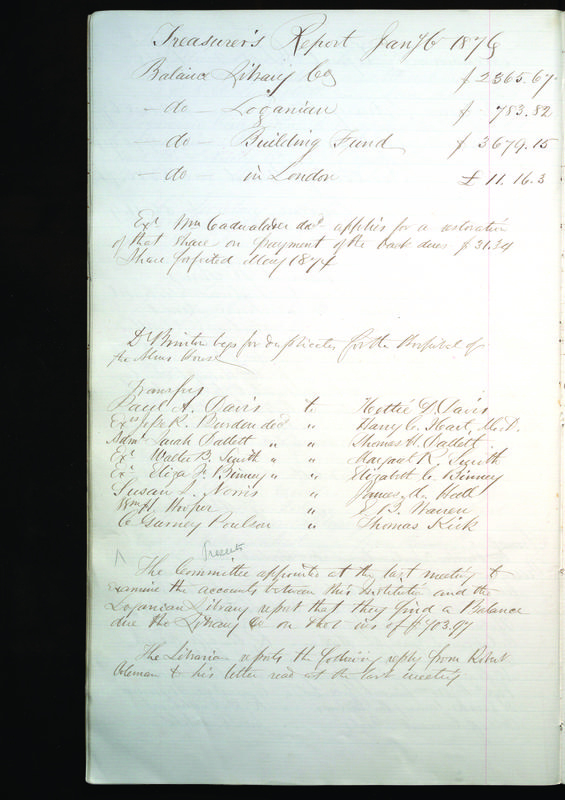 Treasurer's Report Jany 6 1876
Balance Library Co $2365.67
— do — Loganian $ 783.82
— do — Building Fund $3679.15
— do — in London £11.16.3
Exr Wm Cadwalader decd applies for a restoration
of that share on payment of the back dues $31.34
Share forfeited May 1874
Dr begs for duplicates for the Hospital of
the Alms House
Transfers
Paul A. Davis to Hettie D. Davis
Exrs R. Burden decd " Harry C. Hart, M.D.
Admr Sarah Pallett " " Thomas H. Pallett
Exr Walter B. Smith " " Margaret R. Smith
Exr Eliza F. Binney " " Elizabeth C. Binney
Susan L. Norris " James M.
Wm H. Hooper " B. Warren
C Gurney Poulson " Thomas Kirk
Presents
The Committee appointed at the last meeting to
examine the accounts between this Institution and the
Loganian Library report that they find a Balance
due the Library Co on that of $703.97
The Librarian reports the following reply from Robert
Coleman to his letter read at the last meeting